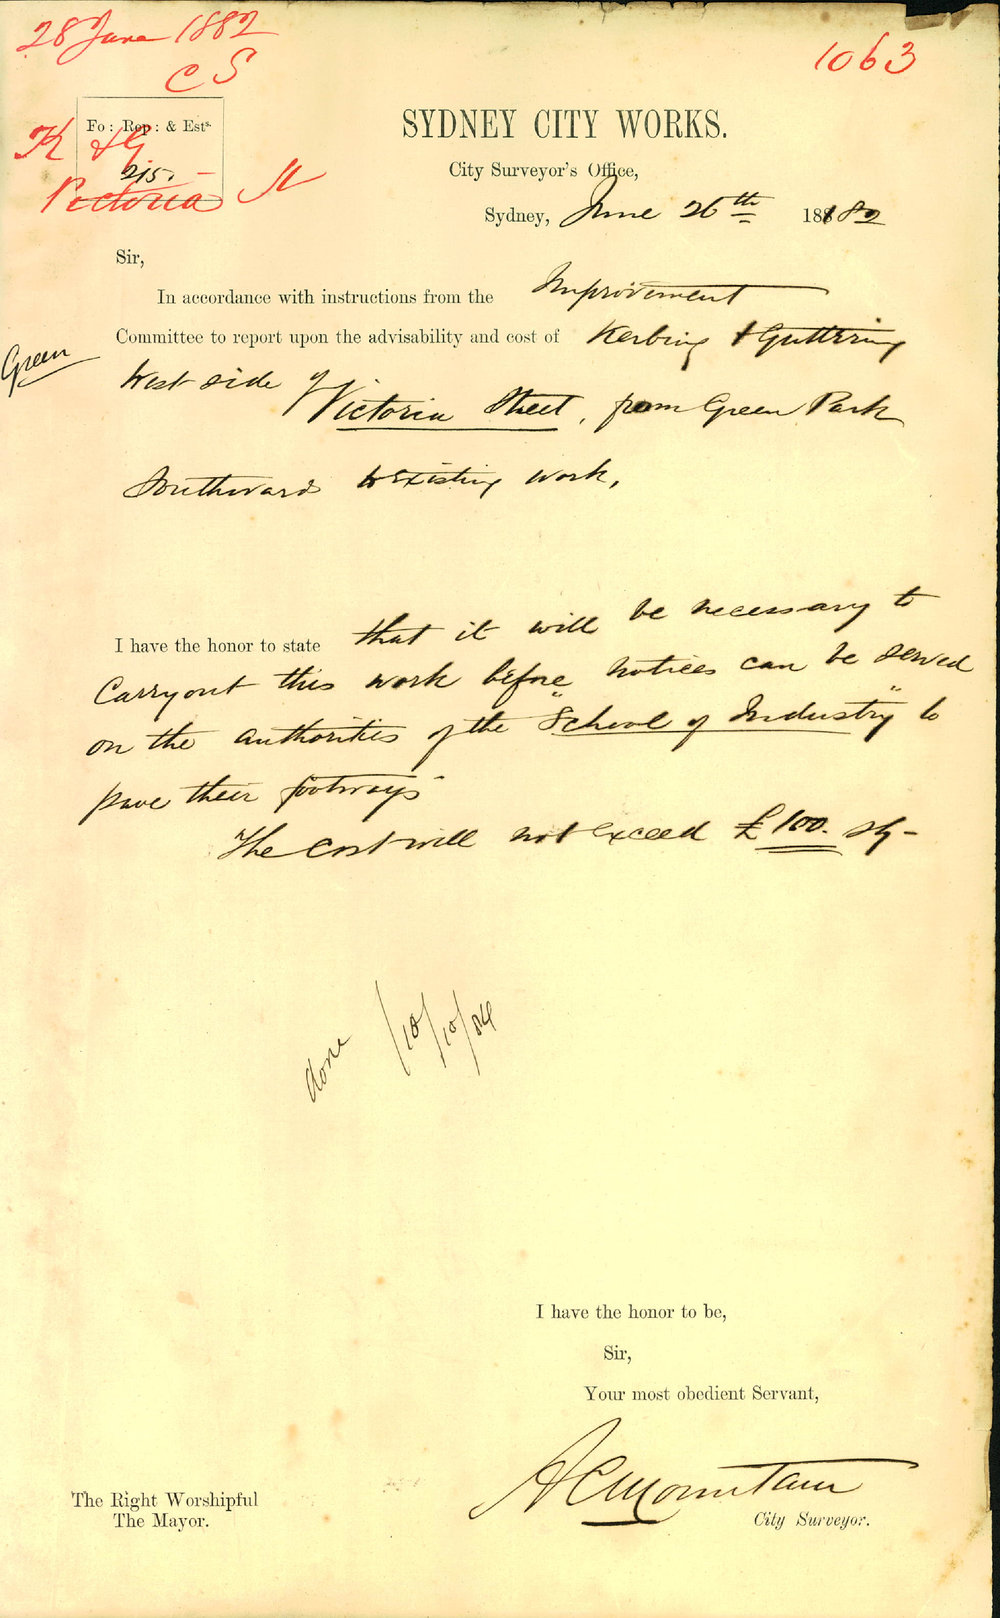 28 June 1882
C S
1063
Fo: Rep: & Ests.
K & G
215.
Victoria St
SYDNEY CITY WORKS.
City Surveyor's Office,
Sydney, June 26th 1882
Sir,
In accordance with instructions from the Improvement
Committee to report upon the advisability and cost of Kerbing & Guttering
Green
West side of Victoria Street, from Green Park
Southwards to existing work.
I have the honor to state that it will be necessary to
carry out this work before notices can be served
on the authorities of the "School of Industry" to
pave their footways
The cost will not exceed £100. stg-
done 10/10/84
I have the honor to be,
Sir,
Your most obedient Servant,
A C Mountain
City Surveyor.
The Right Worshipful
The Mayor.